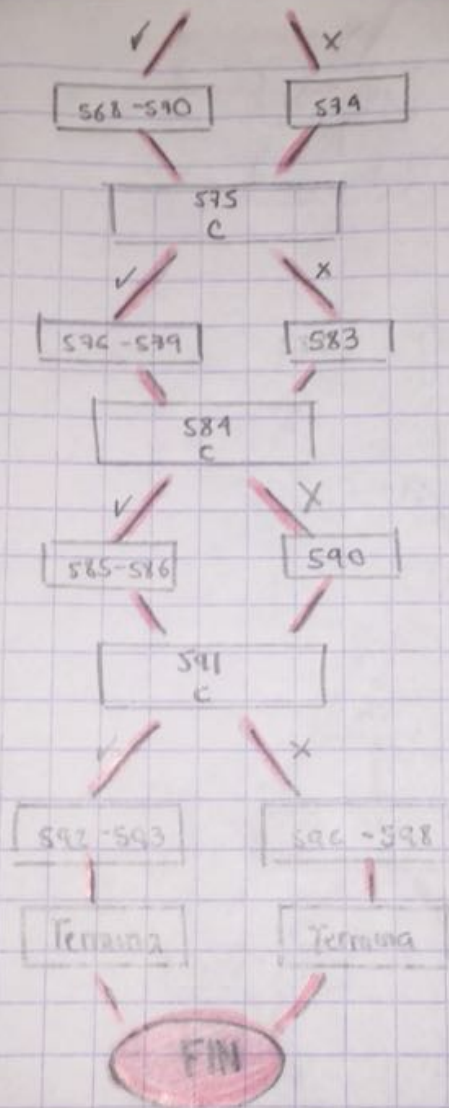 ✓ X
568-590 574
575
C
✓ X
576-579 583
584
C
✓ X
585-586 590
591
C
✓ X
592-593 596-598
Termina Termina
FIN